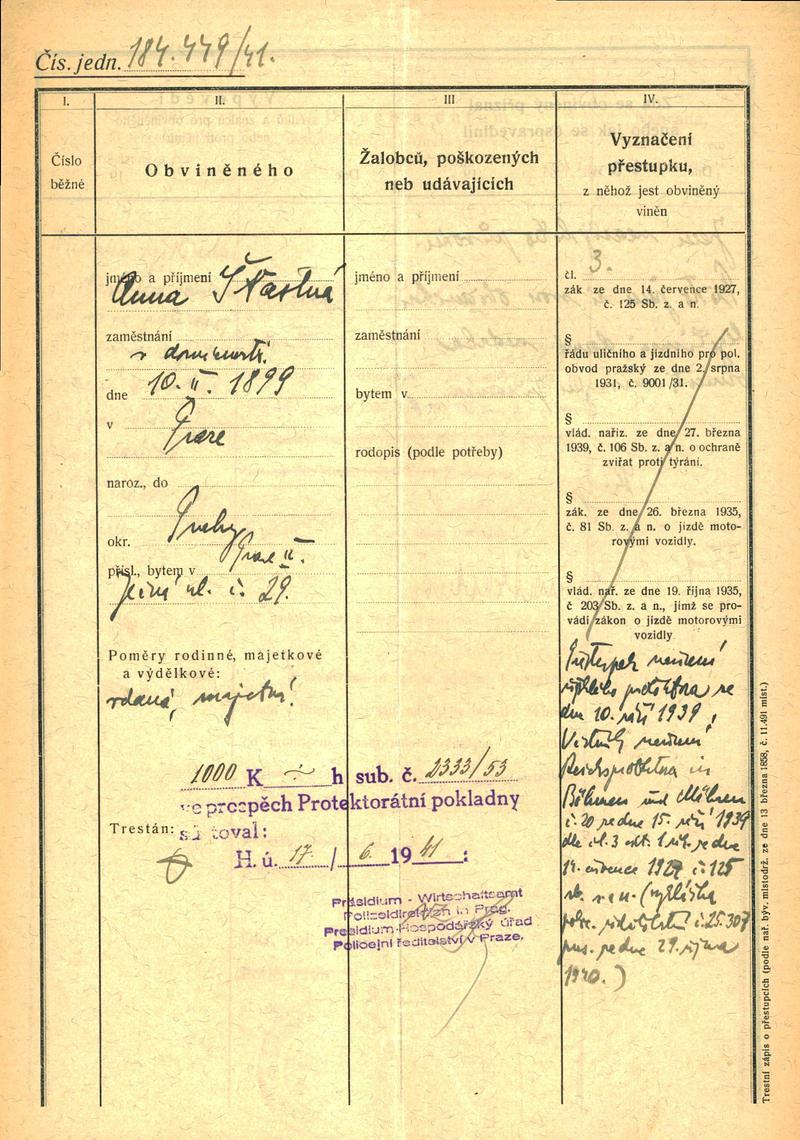 Čís. jedn. 184.479/41.
I.
Číslo
běžné
II.
Obviněného
III
Žalobců, poškozených
neb udávajících
IV.
Vyznačení
přestupku,
z něhož jest obviněný
viněn
jméno a příjmení
Anna Šťastná
zaměstnání
v domácnosti.
dne 10. II. 1899
v
Praze
naroz., do
Prahy
okr.
Praze II.
přísl., bytem v
Ječná ul. č. 29.
Poměry rodinné, majetkové
a výdělkové:
vdaná, majetná.
Trestán:
jméno a příjmení
zaměstnání
bytem v
rodopis (podle potřeby)
čl. 3.
zák ze dne 14. července 1927,
č. 125 Sb. z. a n.
§
řádu uličního a jízdního pro pol.
obvod pražský ze dne 2. srpna
1931, č. 9001/31.
§
vlád. nařiz. ze dne 27. března
1939, č. 106 Sb. z. a n. o ochraně
zvířat proti týrání.
§
zák. ze dne 26. března 1935,
č. 81 Sb. z. a n. o jízdě moto-
rovými vozidly.
§
vlád. nař. ze dne 19. října 1935,
č 203 Sb. z. a n., jímž se pro-
vádí zákon o jízdě motorovými
vozidly
Přestupek nařízení
říšského protektora ze
dne 10. září 1939,
Věstník nařízení
Reichsprotektora in
Böhmen und Mähren
č. 20 ze dne 15. září 1939
dle čl. 3 odst. 1 zák. ze dne
14. července 1927 č. 125
sb. z. a n. (vyhláška
polic. ředitelství č. 25.307
pres. ze dne 29. října
1940.)
1000 K h sub. č. 2333/53
ve prospěch Protektorátní pokladny
toval:
H. ú. 17/6. 1941:
Präsidium - Wirtschaftsamt
Polizeidirektion in Prag.
Presidium-Hospodářský úřad
Policejní ředitelství v Praze.
Trestní zápis o přestupcích (podle nař. býv. místodrž. ze dne 13 března 1858, č. 11.491 míst.)